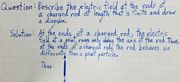 Question - Describe the electric field at the ends of
a charged rod of length that is finite and draw
a diagram.
Solution - At the ends of a charged rod, the electric
field at a point runs only along the axis of the rod. Thus
at the ends of a charged rod, the rod behaves no
differently than a point particle.
Thus